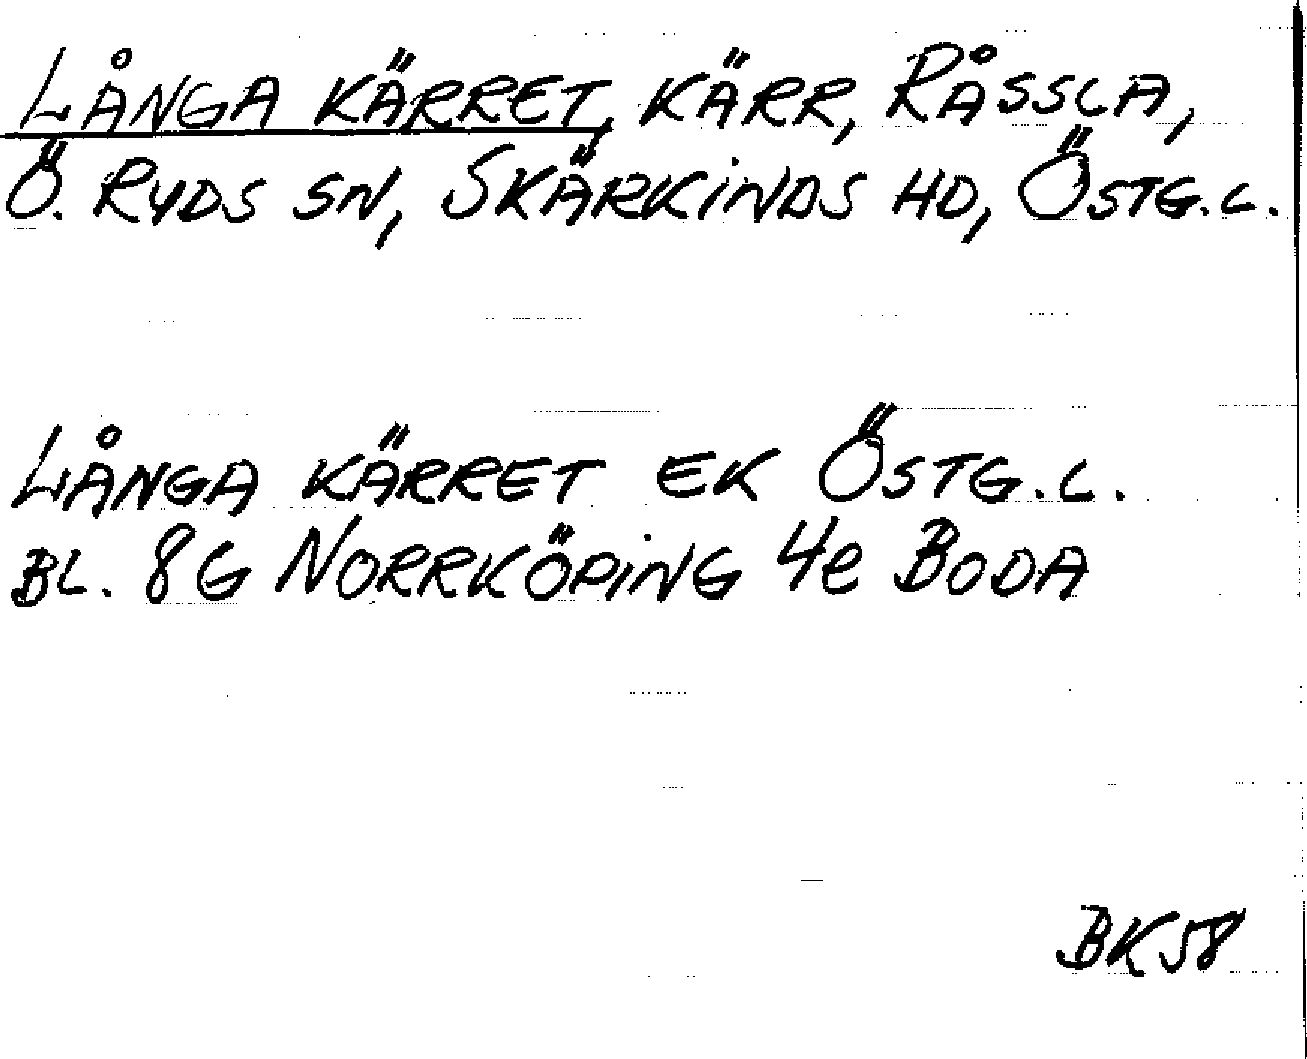 LÅNGA KÄRRET, KÄRR, RÅSSLA,
Ö. RYDS SN, SKÄRKINDS HD, ÖSTG.L.
LÅNGA KÄRRET EK ÖSTG.L.
BL. 8G NORRKÖPING 4e BODA
BK58